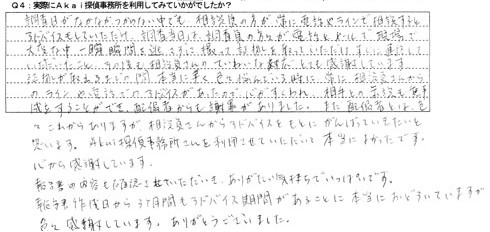 Q4：実際にAkai探偵事務所を利用してみていかがでしたか？
調査日がなかなかつかめない中でも、相談員の方が常に電話やラインで相談すると
アドバイスもしていただけ、調査当日は、調査員の方々が電話とメールで現場で
大変な中一瞬瞬間を逃さずに撮って証拠を取っていただけ
していたこと、その後も相談員さんのていねいな対応、とても感謝しています。
証拠が取れるまでの間、本当に辛く色々悩んでいる時に常に相談員さんから
のラインや電話でのアドバイスがあったので、心がすくわれ、相手との
成をすることができ、配偶者からも謝罪がありました。また配偶者とは、色
々これからありますが相談員さんからアドバイスをもとにがんばっていきたいと
思います。Akai探偵事務所さんを利用させていただいて本当によかったです。
心から感謝しています。
報告書の内容も確認させていただいき、ありがたい気持ちでいっぱいです。
報告書作成日から3ヶ月間もアドバイス期間があることに本当におどろいていますが
色々感謝しています。ありがとうございました。